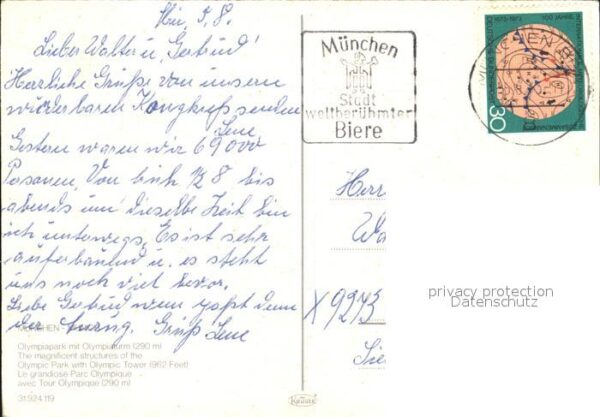 Mü, 5.8.
Lieber Walter u. Gertrud!
Herrliche Grüße von unserm
wunderbaren Kongreß senden
Lene
Gestern waren wir 69000
Personen. Von früh 1/2 8 bis
abends um dieselbe Zeit bin
ich unterwegs. Es ist sehr
auferbauend u. es steht
uns noch viel bevor.
Liebe Gertrud wenn paßt denn
der Anzug. Gruß Lene
MÜNCHEN
Olympiapark mit Olympiaturm (290 m)
The magnificent structures of the
Olympic Park with Olympic Tower (962 Feet)
Le grandiose Parc Olympique
avec Tour Olympique (290 m)
31.924.119
Krüger
München
Stadt
weltberühmter
Biere
MÜNCHEN
1873-1973
100 JAHRE
DEUTSCHE BUNDESPOST
30
Herr
Wa
X 9273
Sie
privacy protection
Datenschutz